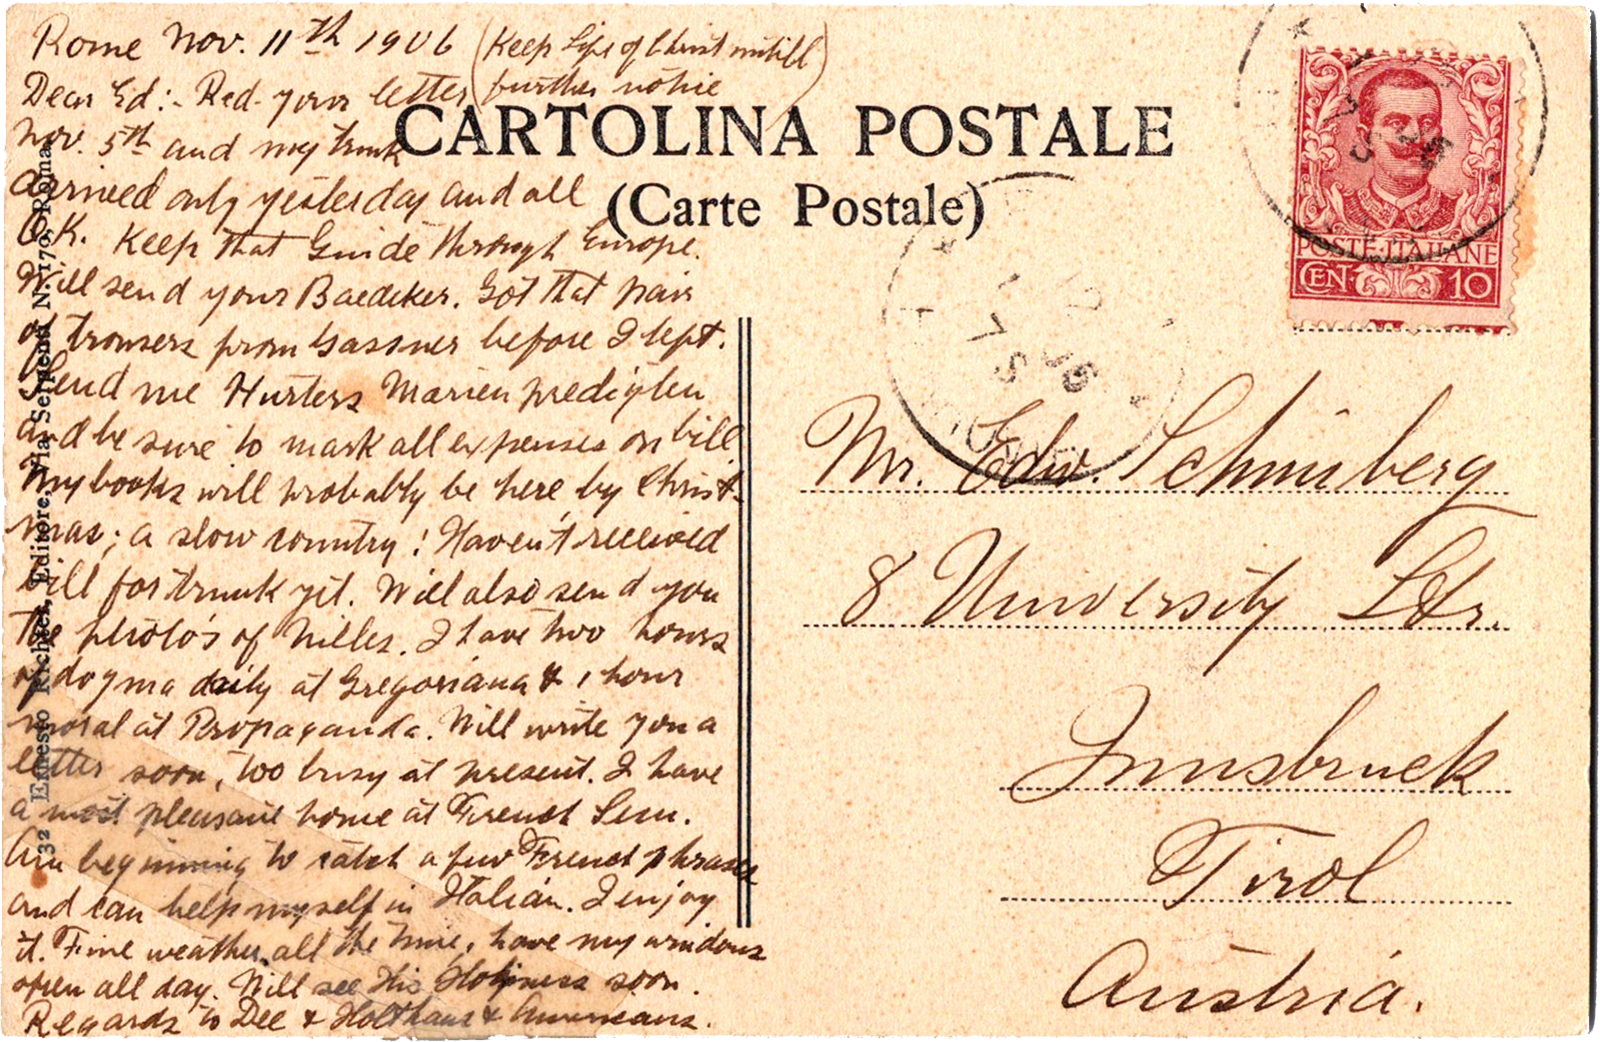 Rome Nov. 11th 1906 (Keep Life of Christ untill
further notice)
Dear Ed:- Red. your letter
Nov. 5th and my trunk
arrived only yesterday and all
O.K. Keep that Guide through Europe.
Will send your Baedeker. Got that pair
of trousers from Gassner before I left.
Send me Hurters Marien predigten
and be sure to mark all expenses on bill.
My books will probably be here by Christ-
mas; a slow country! Haven't received
bill for trunk yet. Will also send you
the photo's of Nilles. I have two hours
of dogma daily at Gregoriana & 1 hour
moral at Propaganda. Will write you a
letter soon, too busy at present. I have
a most pleasant home at French Sem.
Am beginning to catch a few French phrases
and can help myself in Italian. I enjoy
it. Fine weather all the time, have my windows
open all day. Will see His Holiness soon.
Regards to Dee & Holthaus & Americans.
CARTOLINA POSTALE
(Carte Postale)
POSTE·ITALIANE
CEN 10
Mr. Edw. Schmiberg
8 University Str.
Innsbruck
Tirol
Austria.
32 Ernesto Richter, Editore, Via Serpenti N. 170, Roma.